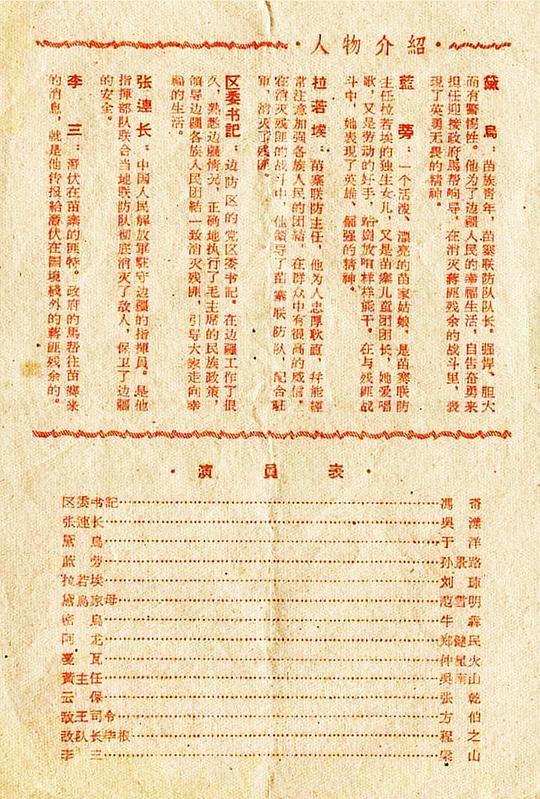 ·人物介紹·
黛 烏：苗族青年，苗寨联防队队长。强悍、胆大
而有警惕性。他为了边疆人民的幸福生活，自告奋勇来
担任迎接政府馬帮向导，在消灭蔣匪残余的战斗里，表
現了英勇无畏的精神。
蓝 ：一个活泼、漂亮的苗家姑娘，是苗寨联防
主任拉若埃的独生女儿，又是苗寨儿童团团长，她爱唱
歌，又是劳动的好手，站崗放哨样样能干。在与残匪战
斗中，她表現了英雄、倔强的精神。
拉若埃：苗寨联防主任，他为人忠厚耿直，并能經
常注意加强各族人民的团結，在群众中有很高的威信。
在消灭残匪的战斗中，他領导了苗寨联防队，配合駐
軍，消灭了残匪。
区委书記：边防区的党区委书記。在边疆工作了很
久，熟悉边疆情况，正确地执行了毛主席的民族政策，
領导边疆各族人民团結一致消灭残匪，引导大家走向幸
福的生活。
张連长：中国人民解放軍駐守边疆的指揮員。是他
指揮部队联合当地联防队彻底消灭了敌人，保卫了边疆
的安全。
李 三：潛伏在苗寨的匪特。政府的馬帮往苗寨来
的消息，就是他传报給潛伏在国境綫外的蔣匪残余的。
·演員表·
区委书記……馮 奇
张連长……吳
黛 烏……于 洋
蓝 劳……孙景路
拉若埃……刘 琼
黛烏家母……范雪明
密 烏……牛 犇
阿 龙……郑健民
 瓦……仲星火
黃主任……吳南山
云 保……张 乾
敌王司令……方 伯
敌队长 ……程 之
李 三……梁 山